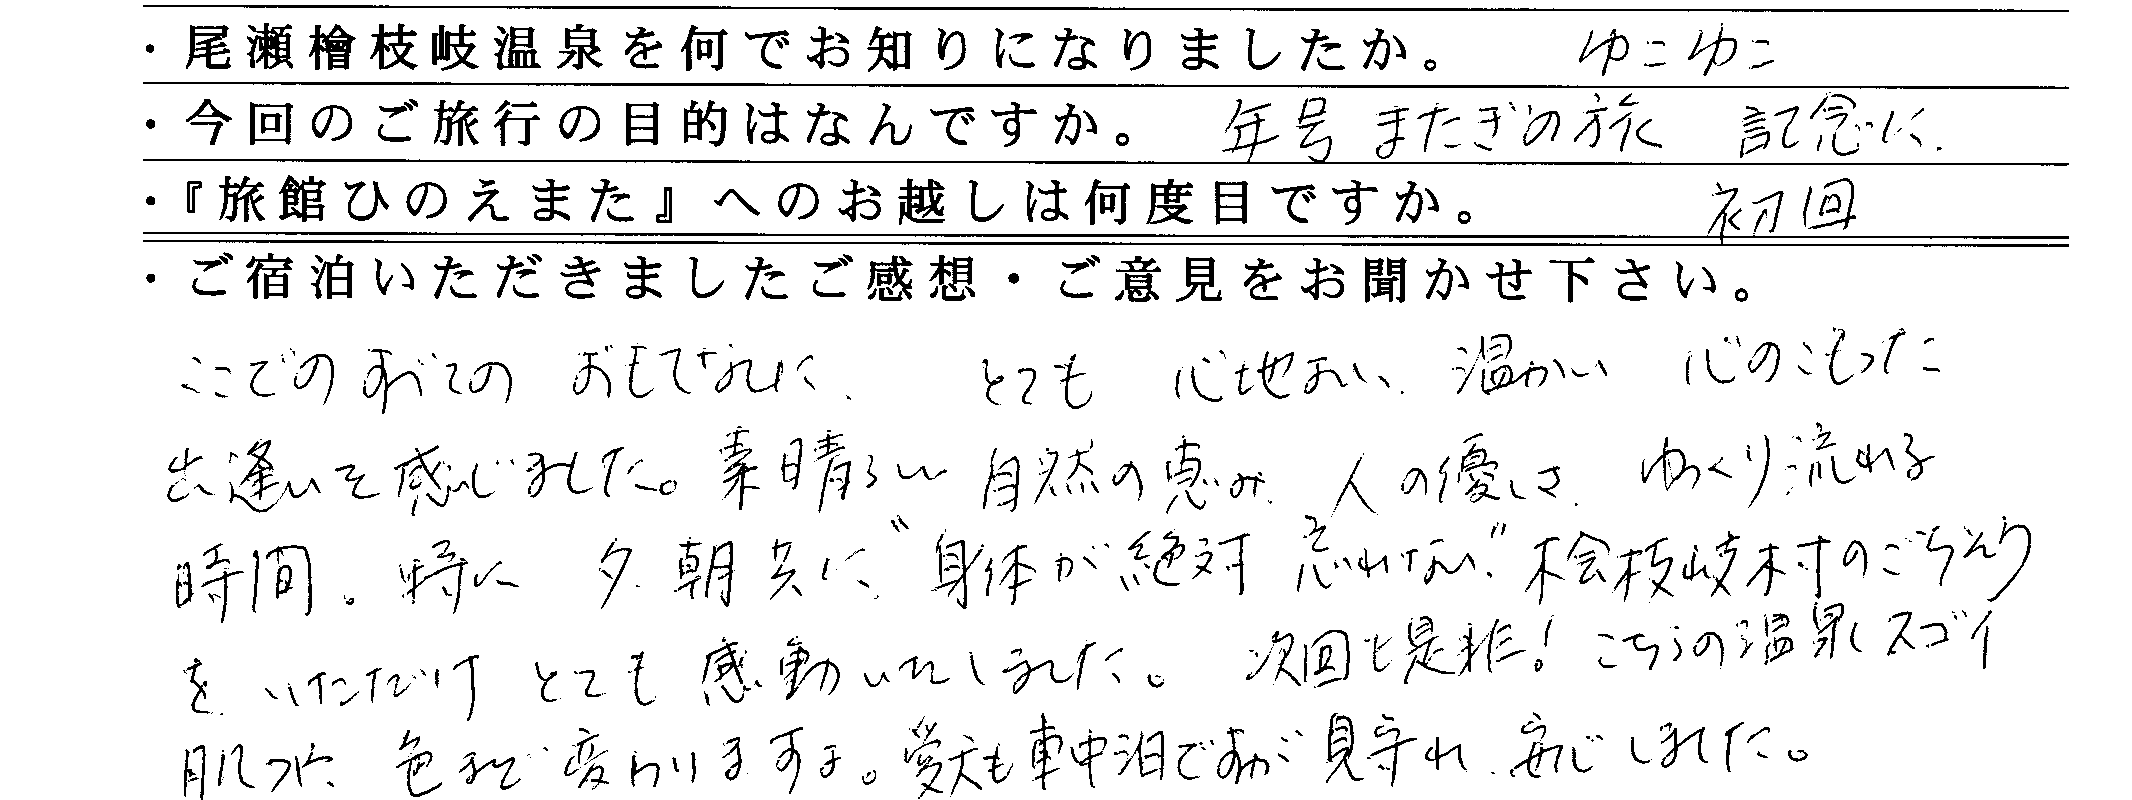 ・尾瀬檜枝岐温泉を何でお知りになりましたか。 ゆこゆこ
・今回のご旅行の目的はなんですか。 年号またぎの旅 記念に.
・『旅館ひのえまた』へのお越しは何度目ですか。 初回
・ご宿泊いただきましたご感想・ご意見をお聞かせ下さい。
ここでのすべての おもてなしに、 とても 心地よい、温かい 心のこもった
出逢いを感じました。素晴らしい 自然の恵み、人の優しさ、ゆっくり流れる
時間。特に 夕、朝共に、“身体が絶対 忘れない”桧枝岐村のごちそう
を いただけ とても 感動いたしました。 次回も是非！こちらの温泉もスゴイ
肌つや、色まで変わりますよ。愛犬も車中泊ですが 見守れ、安心しました。